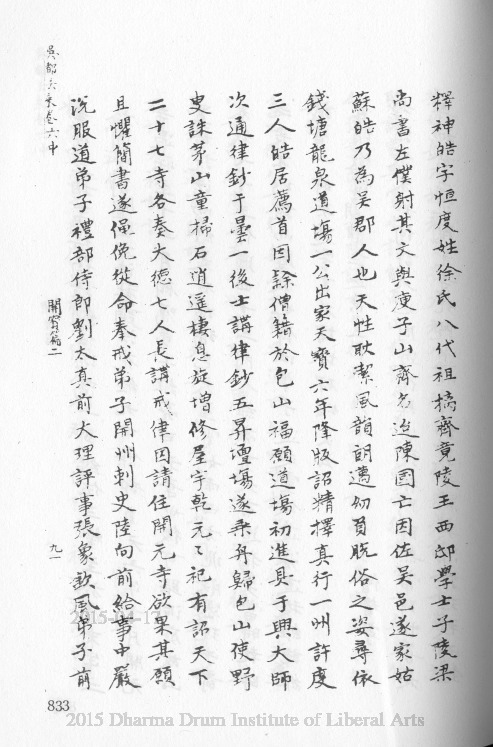 釋神皓字恒度姓徐氏八代祖摛齊竟陵王西邸學士子陵梁
尚書左僕射其文與庾子山齊名迨陳國亡因佐吳邑遂家姑
蘇皓乃為吳郡人也天性耿潔風韻朗邁幼負脫俗之姿尋依
錢塘龍泉道場一公出家天寶六年降版詔精擇真行一州許度
三人皓居薦首因餘僧籍於包山福願道場初進具于興大師
次通律鈔于曇一後士講律鈔五昇壇場遂乘舟歸包山使野
叟誅茅山童掃石逍遥棲息旋增修屋宇乾元乀祀有詔天下
二十七寺各奏大德七人長講戒律因請住開元寺欲果其願
且懼簡書遂僶俛從命奉戒弟子開州刺史陸向前給事中嚴
涗服道弟子禮部侍郎劉太真前大理評事張象欽風弟子前
吳都文粹卷六中
開寶篇二
九一
833
2015-04-17
2015 Dharma Drum Institute of Liberal Arts